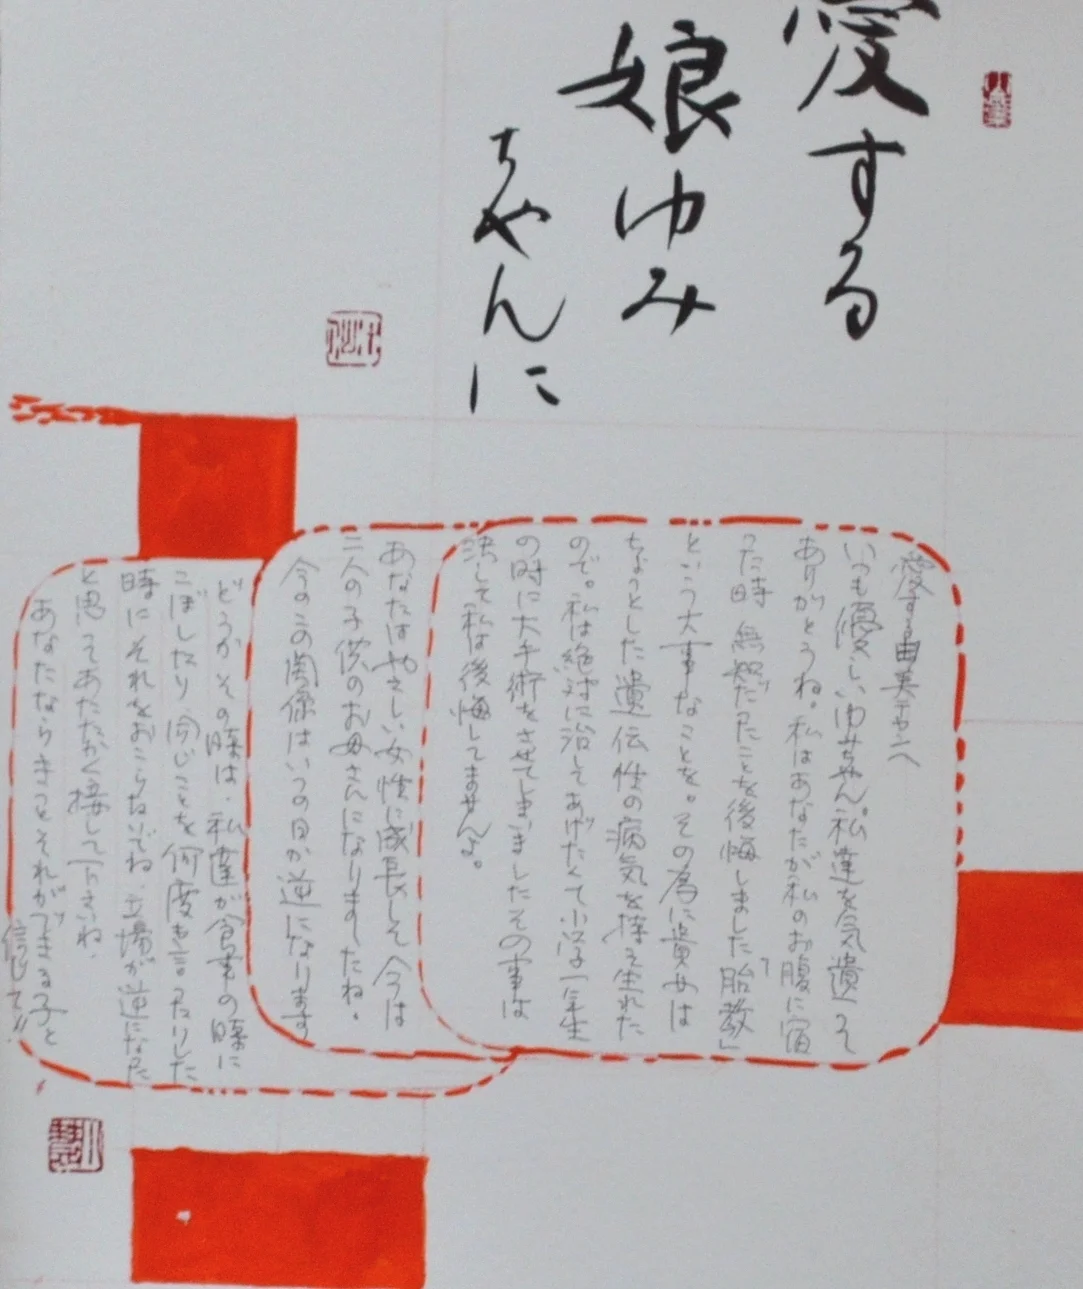 愛する
娘ゆみ
ちゃんに
愛する由美チャンへ
いつも優しいゆみちゃん。私達を気遣って
ありがとうね。私はあなたが私のお腹に宿
った時 無知だったことを後悔しました「胎教」
という大事なことを。その為に貴女は
ちょっとした遺伝性の病気を持って生れた
ので。私は絶対に治してあげたくて小学一年生
の時に大手術をさせてしまいましたその事は
決して私は後悔してませんよ。
あなたはやさしい女性に成長して 今は
二人の子供のお母さんになりましたね。
今のこの関係はいつの日か逆になります
どうかその際は、私達が食事の際に
こぼしたり 同じことを何度も言ったりした
時にそれをおこらないでね、立場が逆になった
と思ってあたたかく接して下さいね、
あなたならきっとそれができる子と
信じて!!